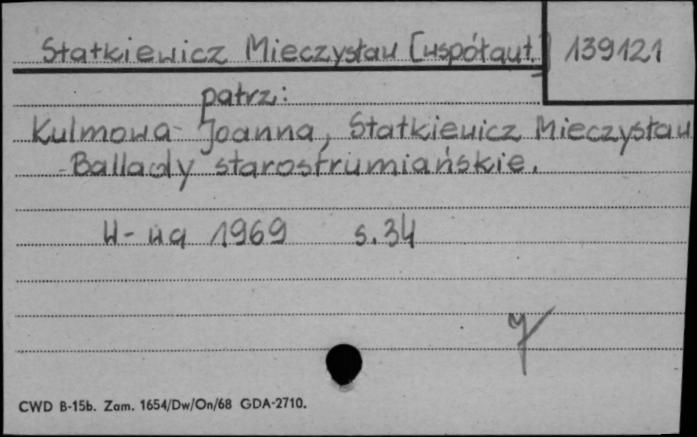 Statkiewicz Mieczysław [współaut.] 139121
patrz:
Kulmowa Joanna, Statkiewicz Mieczysław
Ballady starostrumiańskie.
W-wa 1969 s.34
CWD B-15b. Zam. 1654/Dw/On/68 GDA-2710.